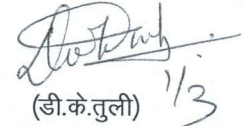 1/3
(डी.के.तुली)